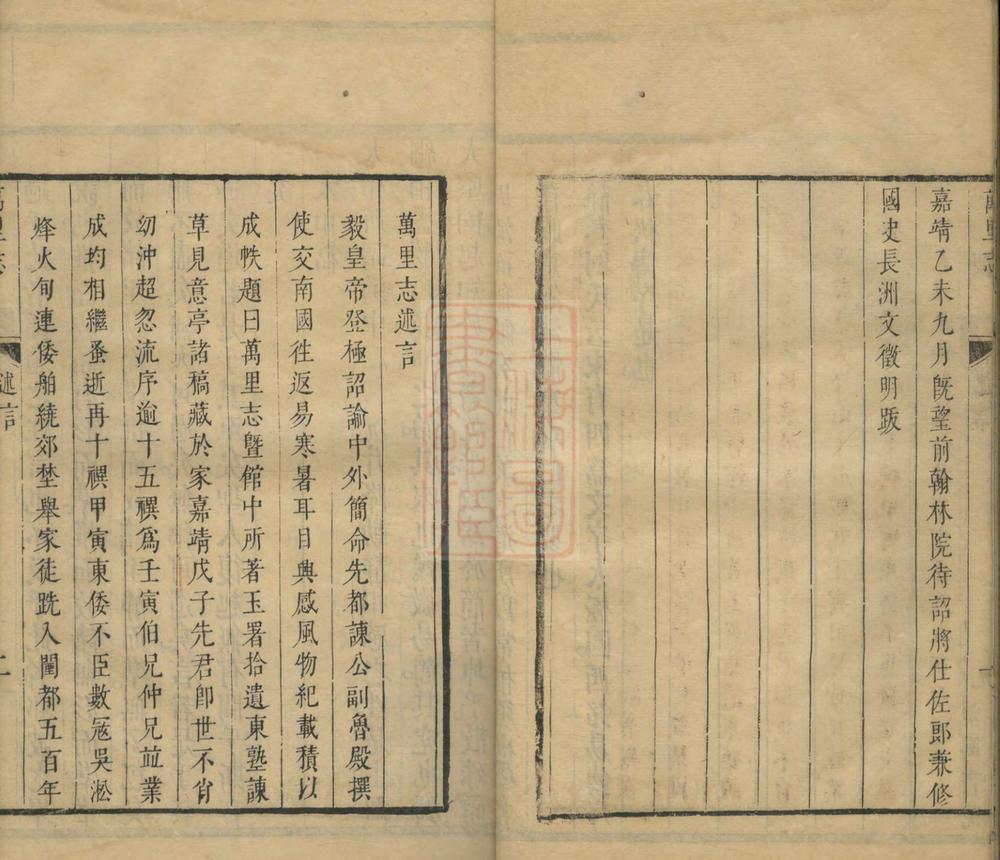 嘉靖乙未九月既望前翰林院待詔將仕佐郎兼修
國史長洲文徵明跋
萬里志述言
毅皇帝登極詔諭中外簡命先都諫公副魯殿撰
使交南國徃返易寒暑耳目興感風物紀載積以
成帙題曰萬里志暨館中所著玉署拾遺東塾諫
草見意亭諸稿藏於家嘉靖戊子先君即世不肖
幼沖超忽流序逾十五禩為壬寅伯兄仲兄並業
成均相繼蚤逝再十禩甲寅東倭不臣數寇吳淞
烽火旬連倭舶繞郊埜舉家徒跣入闉都五百年
述言